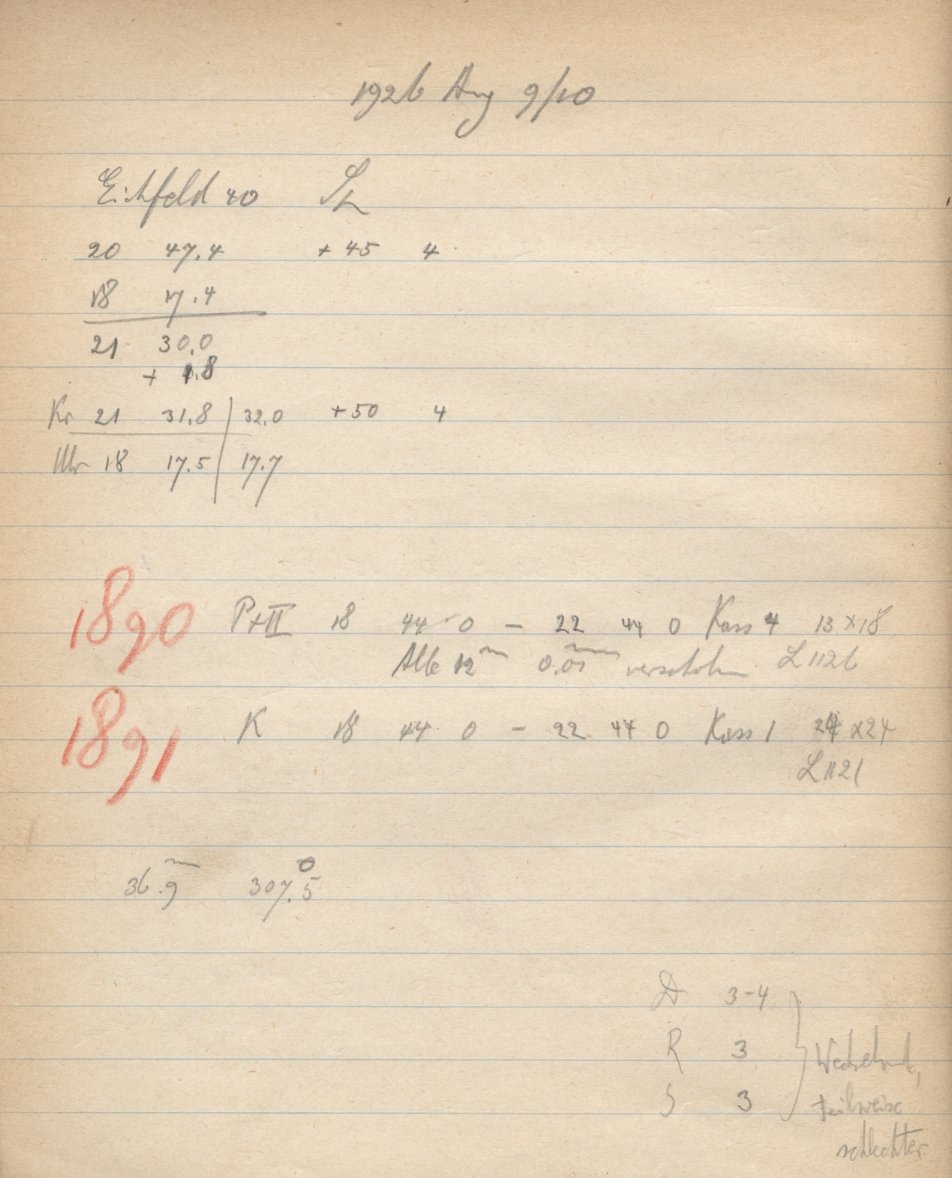 1926 Aug 9/10
Eichfeld 40 SL
20 47.4 + 45 4
18 17.4
21 30.0
+ 1.8
Kr 21 31.8 | 32.0 +50 4
Uhr 18 17.5 | 17.7
1890 P+II 18 44 0 – 22 44 0 Kass 4 13 x 18
Alle 12ᵐ 0.01ᵐᵐ verschoben L 1126
1891 K 18 44 0 – 22 44 0 Kass 1 24 x 24
L 1121
36.9ᵐᵐ 307.5⁰
D 3-4
R 3
S 3
Wechselnd,
teilweise
schlechter